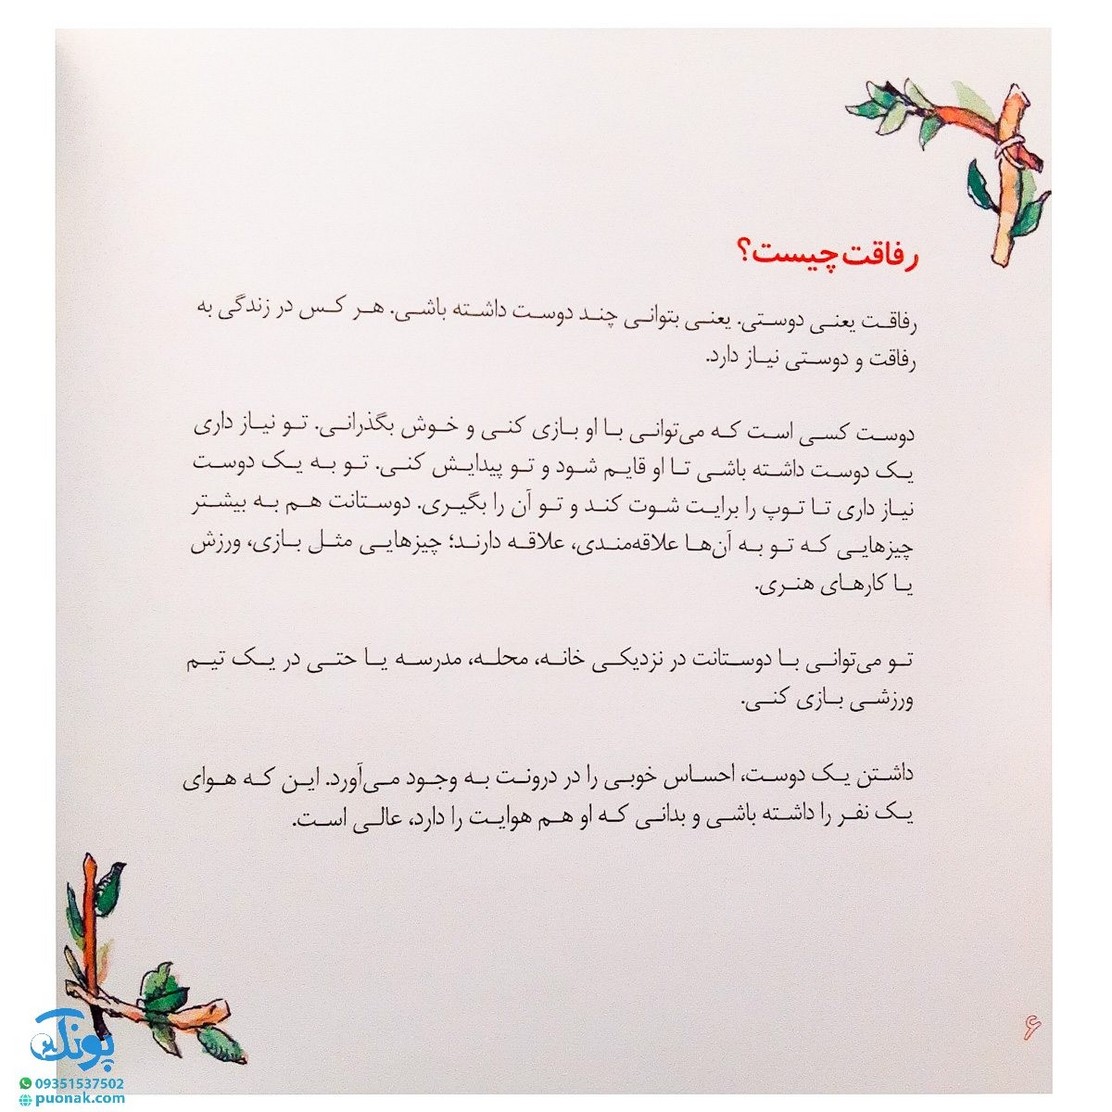 رفاقت چیست؟
رفاقت یعنی دوستی. یعنی بتوانی چند دوست داشته باشی. هر کس در زندگی به
رفاقت و دوستی نیاز دارد.
دوست کسی است که می‌توانی با او بازی کنی و خوش بگذرانی. تو نیاز داری
یک دوست داشته باشی تا او قایم شود و تو پیدایش کنی. تو به یک دوست
نیاز داری تا توپ را برایت شوت کند و تو آن را بگیری. دوستانت هم به بیشتر
چیزهایی که تو به آن‌ها علاقه‌مندی، علاقه دارند؛ چیزهایی مثل بازی، ورزش
یا کارهای هنری.
تو می‌توانی با دوستانت در نزدیکی خانه، محله، مدرسه یا حتی در یک تیم
ورزشی بازی کنی.
داشتن یک دوست، احساس خوبی را در درونت به وجود می‌آورد. این که هوای
یک نفر را داشته باشی و بدانی که او هم هوایت را دارد، عالی است.
۶
پونک
09351537502
puonak.com